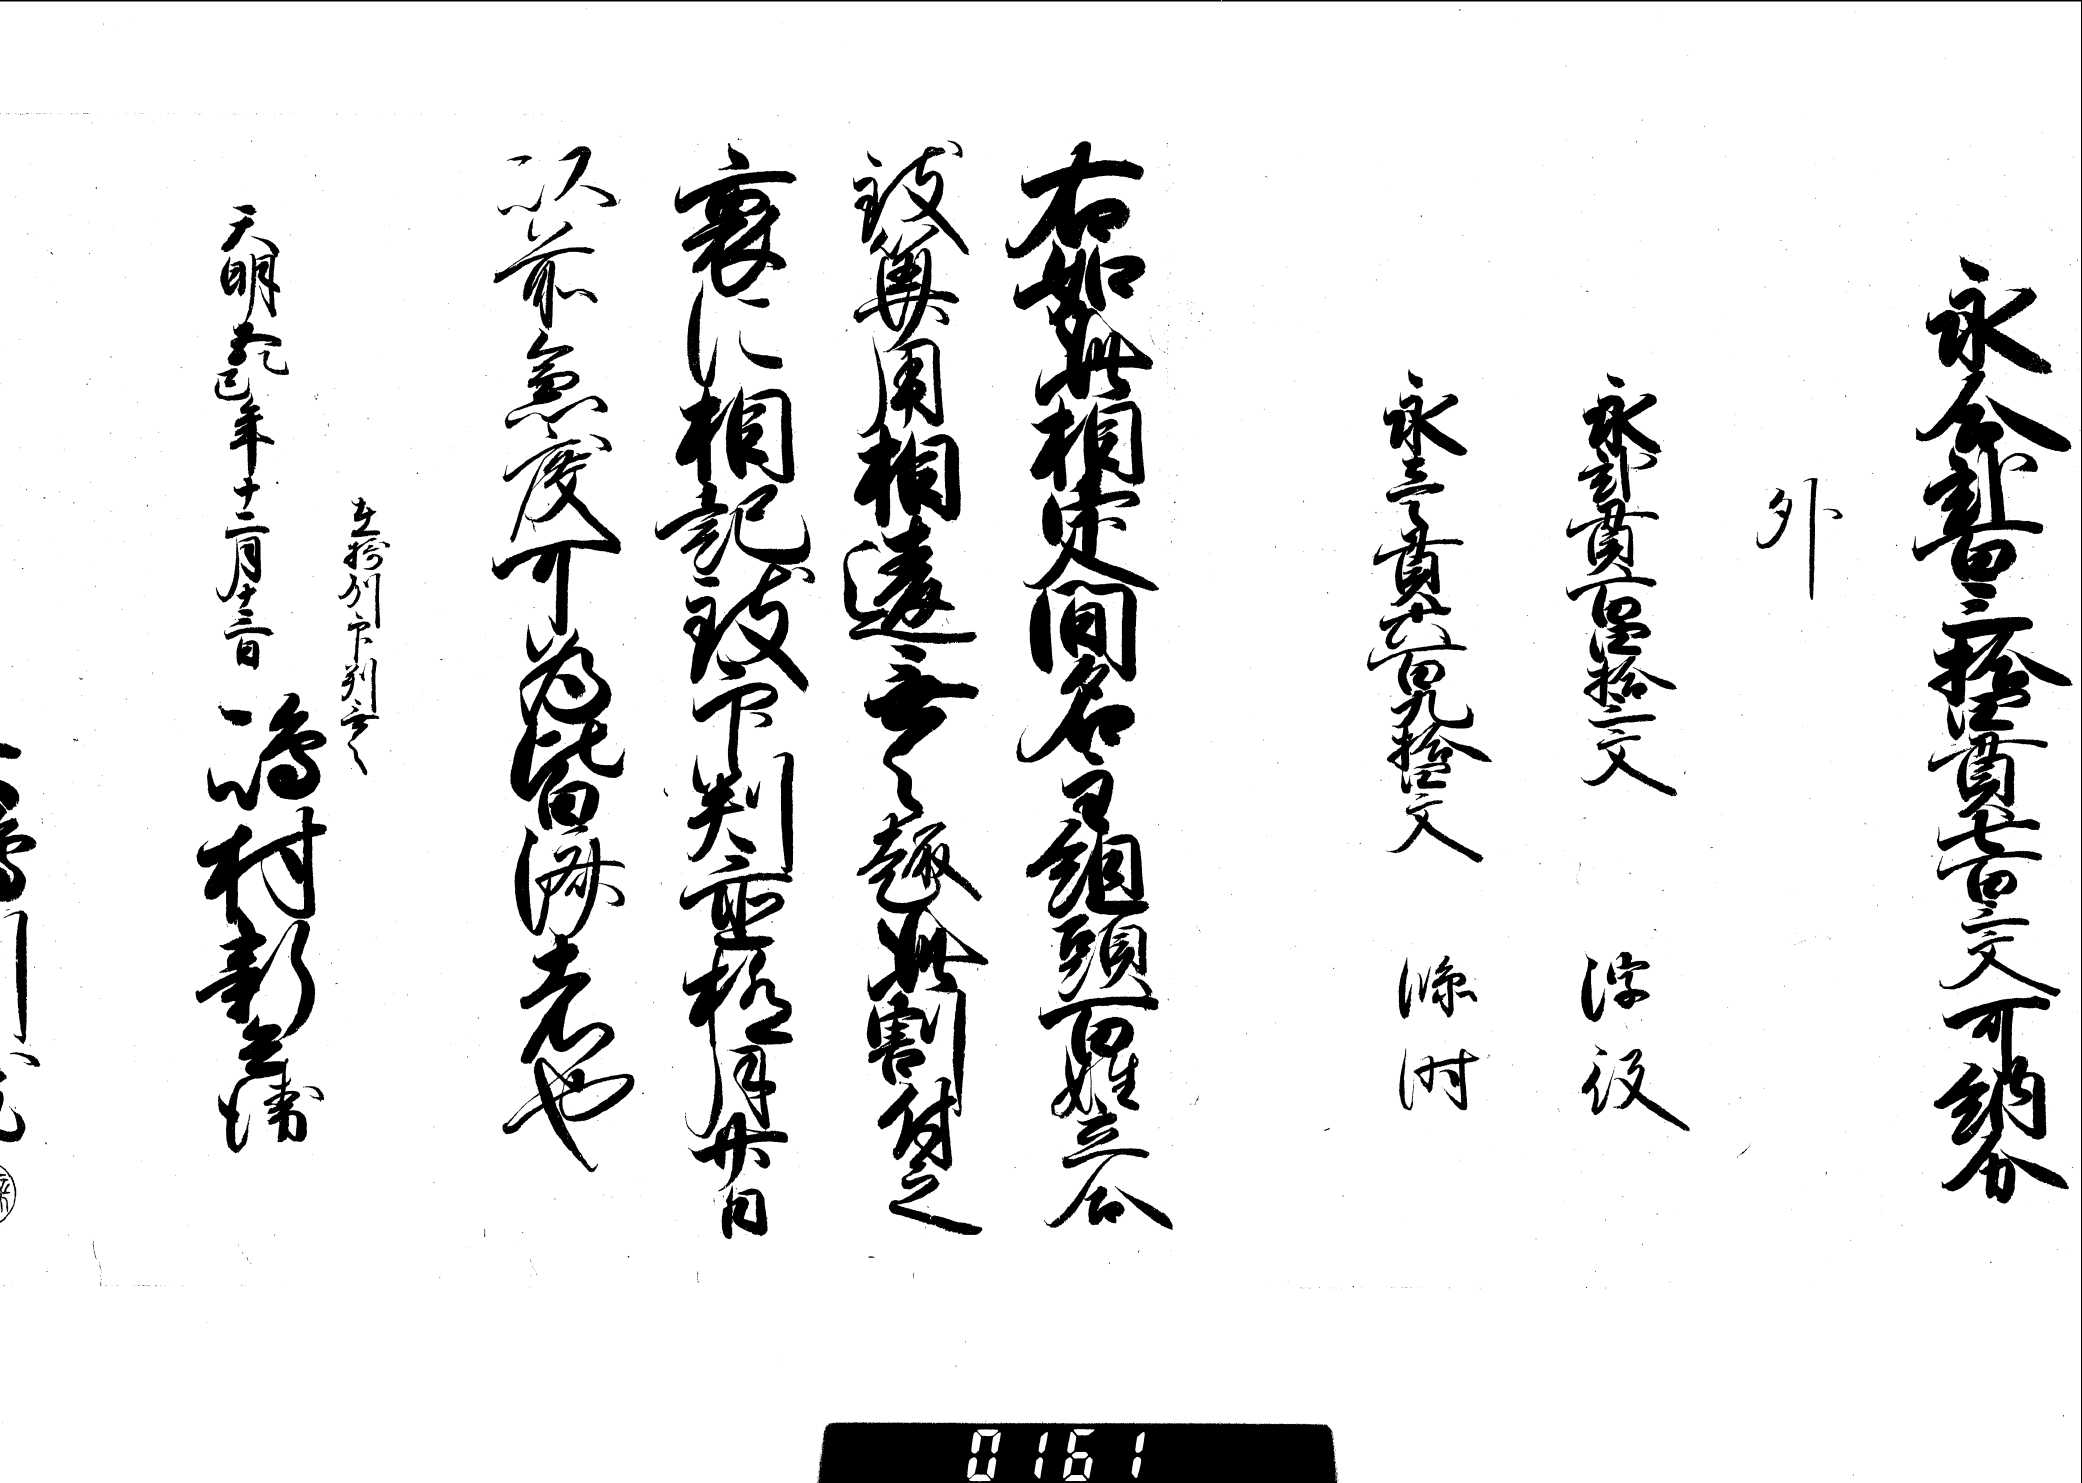 永合弐百三拾四貫七百三文可納分
外
永弐貫百四拾三文 浮役
永三貫六百九拾四文 掛
右如此相定間名主組頭百姓立合
致算用相違無之趣此割付之
裏に相記致印判並極月廿日
以前急度可為皆済者也
在府付印判無之
天明五乙巳年十二月十三日 嶋村新兵衛
0161